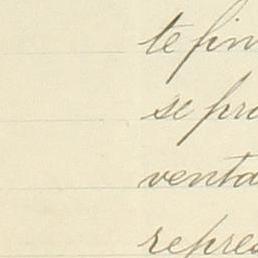 te fin
se pro
venta
repres